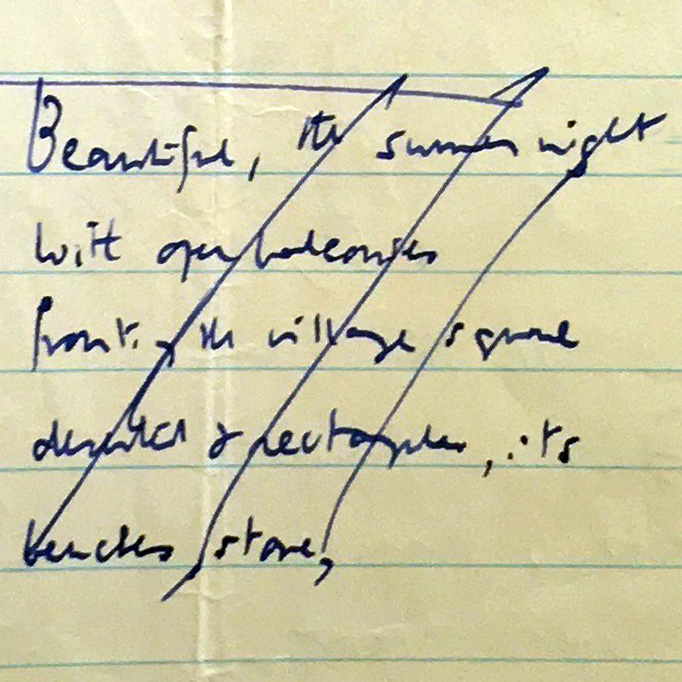 Beautiful, the summer night
With open balconies
fronting the village square
deserted & rectangular, its
benches stone,